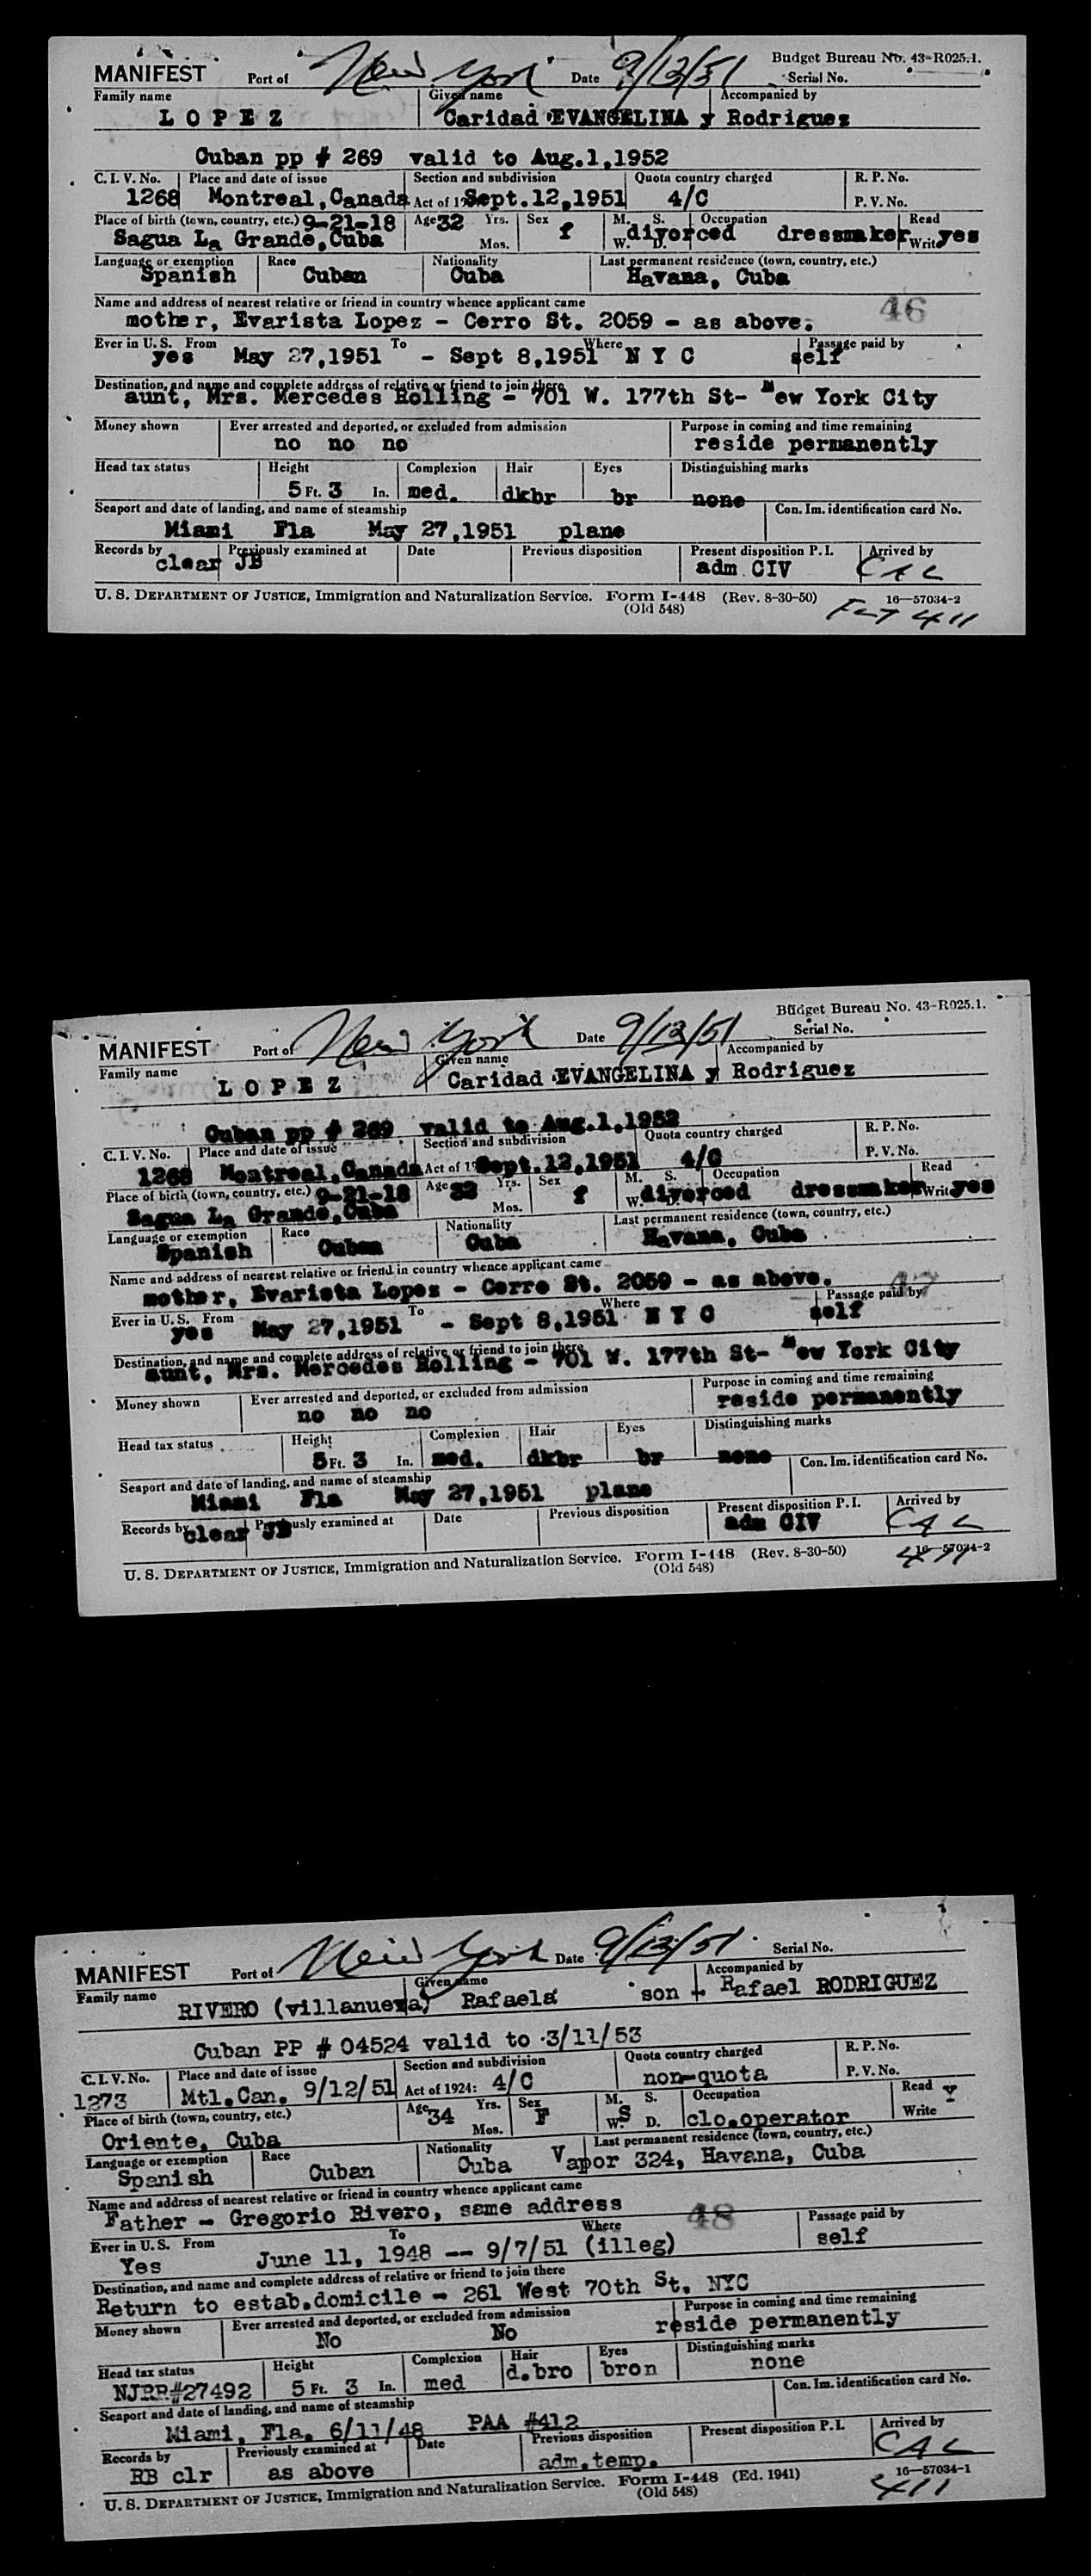 Budget Bureau No. 43-R025.1.
MANIFEST Port of New York Date 9/13/51 Serial No.
Family name Given name Accompanied by
LOPEZ Caridad EVANGELINA y Rodriguez
Cuban pp # 269 valid to Aug.1,1952
C. I. V. No. Place and date of issue Section and subdivision Quota country charged R. P. No.
1268 Montreal,Canada Act of 1 Sept.12,1951 4/C P. V. No.
Place of birth (town, country, etc.) 9-21-18 Age 32 Yrs. Sex M. S. Occupation Read
Sagua La Grande,Cuba Mos. f W. D. divorced dressmaker Write yes
Language or exemption Race Nationality Last permanent residence (town, country, etc.)
Spanish Cuban Cuba Havana, Cuba
Name and address of nearest relative or friend in country whence applicant came 46
mother, Evarista Lopez - Cerro St. 2059 - as above.
Ever in U. S. From To Where Passage paid by
yes May 27,1951 - Sept 8,1951 N Y C self
Destination, and name and complete address of relative or friend to join there
aunt, Mrs. Mercedes Rolling - 701 W. 177th St- New York City
Money shown Ever arrested and deported, or excluded from admission Purpose in coming and time remaining
no no no reside permanently
Head tax status Height Complexion Hair Eyes Distinguishing marks
5 Ft. 3 In. med. dkbr br none
Seaport and date of landing, and name of steamship Con. Im. identification card No.
Miami Fla May 27,1951 plane
Records by Previously examined at Date Previous disposition Present disposition P. I. Arrived by
clear JB adm CIV CAL
U. S. DEPARTMENT OF JUSTICE, Immigration and Naturalization Service. Form I-448 (Rev. 8-30-50) 16—57034-2
(Old 548) 411
Budget Bureau No. 43-R025.1.
MANIFEST Port of New York Date 9/13/51 Serial No.
Family name Given name Accompanied by
LOPEZ Caridad EVANGELINA y Rodriguez
Cuban pp # 269 valid to Aug.1,1952
C. I. V. No. Place and date of issue Section and subdivision Quota country charged R. P. No.
1268 Montreal,Canada Act of 1 Sept.12,1951 4/C P. V. No.
Place of birth (town, country, etc.) 9-21-18 Age 32 Yrs. Sex M. S. Occupation Read
Sagua La Grande,Cuba Mos. f W. D. divorced dressmaker Write yes
Language or exemption Race Nationality Last permanent residence (town, country, etc.)
Spanish Cuban Cuba Havana, Cuba
Name and address of nearest relative or friend in country whence applicant came 47
mother, Evarista Lopez - Cerro St. 2059 - as above.
Ever in U. S. From To Where Passage paid by
yes May 27,1951 - Sept 8,1951 N Y C self
Destination, and name and complete address of relative or friend to join there
aunt, Mrs. Mercedes Rolling - 701 W. 177th St- New York City
Money shown Ever arrested and deported, or excluded from admission Purpose in coming and time remaining
no no no reside permanently
Head tax status Height Complexion Hair Eyes Distinguishing marks
5 Ft. 3 In. med. dkbr br none
Seaport and date of landing, and name of steamship Con. Im. identification card No.
Miami Fla May 27,1951 plane
Records by Previously examined at Date Previous disposition Present disposition P. I. Arrived by
clear JB adm CIV CAL
U. S. DEPARTMENT OF JUSTICE, Immigration and Naturalization Service. Form I-448 (Rev. 8-30-50) 16—57034-2
(Old 548) 411
MANIFEST Port of New York Date 9/13/51 Serial No.
Family name Given name Accompanied by
RIVERO (villanueva) Rafaela son - Rafael RODRIGUEZ
Cuban PP # 04524 valid to 3/11/53
C. I. V. No. Place and date of issue Section and subdivision Quota country charged R. P. No.
1273 Mtl.Can. 9/12/51 Act of 1924: 4/C non-quota P. V. No.
Place of birth (town, country, etc.) Age 34 Yrs. Sex M. S. Occupation Read y
Oriente, Cuba Mos. F W. S D. clo.operator Write
Language or exemption Race Nationality Last permanent residence (town, country, etc.)
Spanish Cuban Cuba Vapor 324, Havana, Cuba
Name and address of nearest relative or friend in country whence applicant came
Father - Gregorio Rivero, same address 48
Ever in U. S. From To Where Passage paid by
Yes June 11, 1948 -- 9/7/51 (illeg) self
Destination, and name and complete address of relative or friend to join there
Return to estab.domicile - 261 West 70th St. NYC
Money shown Ever arrested and deported, or excluded from admission Purpose in coming and time remaining
No No reside permanently
Head tax status Height Complexion Hair Eyes Distinguishing marks
NJRR#27492 5 Ft. 3 In. med d.bro bron none
Seaport and date of landing, and name of steamship Con. Im. identification card No.
Miami, Fla. 6/11/48 PAA #412
Records by Previously examined at Date Previous disposition Present disposition P. I. Arrived by
RB clr as above adm.temp. CAL
U. S. DEPARTMENT OF JUSTICE, Immigration and Naturalization Service. Form I-448 (Ed. 1941) 16—57034-1
(Old 548) 411